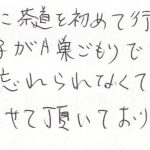 に茶道を初めて行
子が巣ごもりで
忘れられなくて
せて頂いており